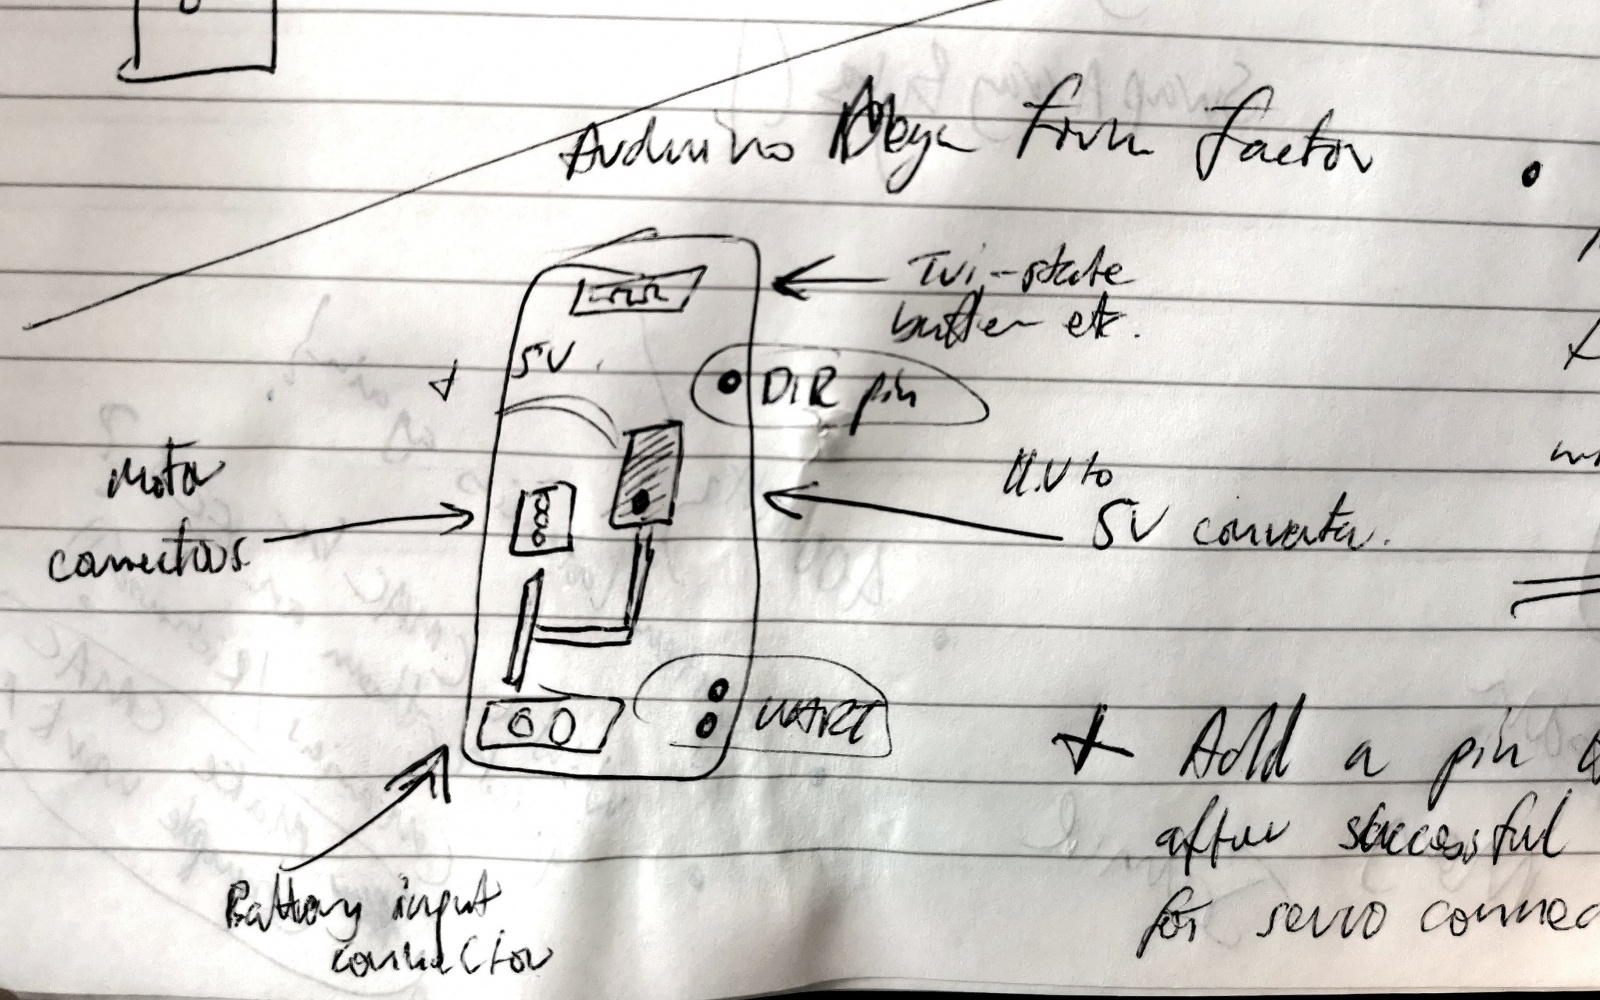 Arduino Mega form factor
Tri-state
buffer etc.
5V
DIR pin
Motor
connectors
to
5V converter.
UART
+ Add a pin
after successful
for servo connec
Battery input
connector